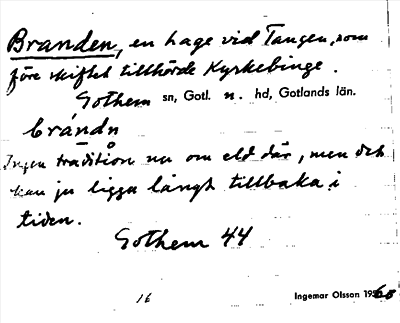 Branden, en hage vid Tangen, som
före skiftet tillhörde Kyrkebinge.
Gothem sn, Gotl. n. hd, Gotlands län.
brándn
Ingen tradition nu om eld där, men det
kan ju ligga långt tillbaka i
tiden.
Gothem 44
16
Ingemar Olsson 1960